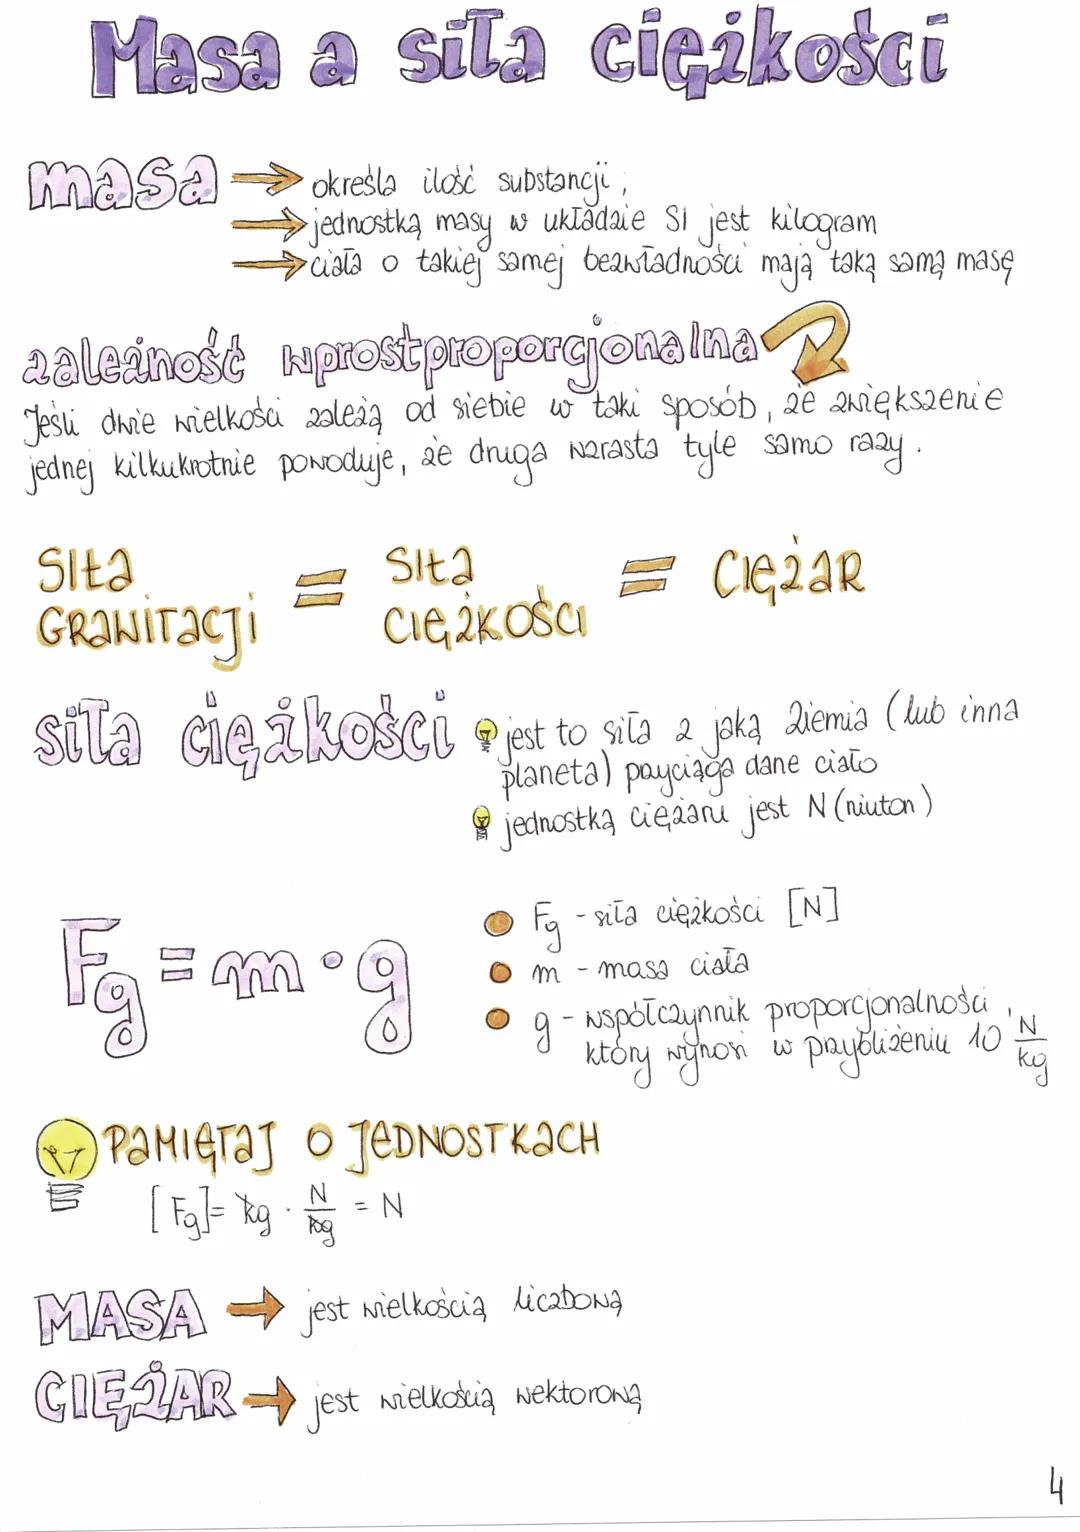 Masa a siła ciężkości
masa → określa ilość substancji,
→ jednostką masy w układzie SI jest kilogram
→ ciała o takiej samej bezwładności mają taką samą masę
zależność wprostproporcjonalna
Jeśli dwie wielkości zależą od siebie w taki sposób, że zwiększenie
jednej kilkukrotnie powoduje, że druga wzrasta tyle samo razy.
SIŁA GRAWITACJI = SIŁA CIĘŻKOŚCI = CIĘŻAR
siła ciężkości
jest to siła z jaką Ziemia (lub inna
planeta) przyciąga dane ciało
jednostką ciężaru jest N (niuton)
Fg = m · g
Fg - siła ciężkości [N]
m - masa ciała
g - współczynnik proporcjonalności,
który wynosi w przybliżeniu 10 N/kg
PAMIĘTAJ O JEDNOSTKACH
[Fg] = kg · N/kg = N
MASA → jest wielkością liczbową
CIĘŻAR → jest wielkością wektorową
4